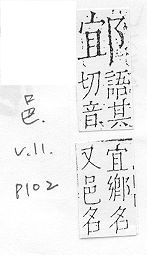 語其
切音
宜鄉名
又邑名
邑.
v.11.
p102